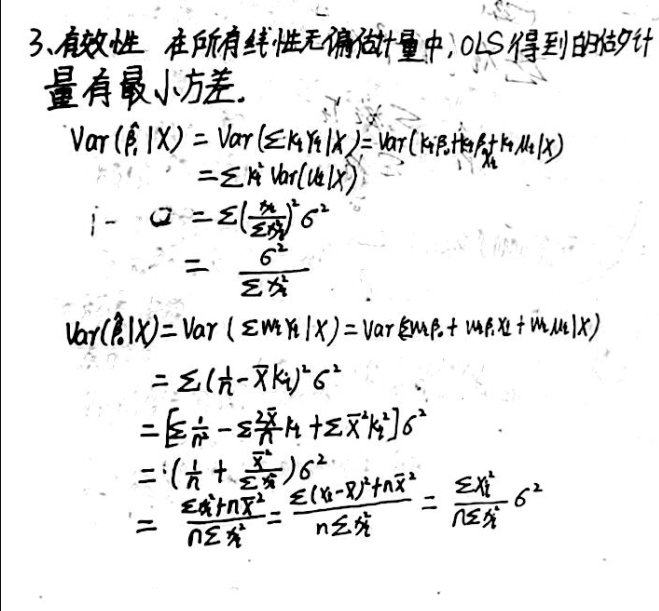 3、有效性 在所有线性无偏估计量中，OLS得到的估计
量有最小方差.
Var(β̂₁|X) = Var(ΣkᵢYᵢ|X) = Var(kᵢβ₀+kᵢβ₁Xᵢ+kᵢμᵢ|X)
= Σkᵢ² Var(μᵢ|X)
= Σ(xᵢ/Σxᵢ²)² σ²
= σ²/Σxᵢ²
Var(β̂₀|X) = Var(ΣwᵢYᵢ|X) = Var(Σwᵢβ₀ + wᵢβ₁Xᵢ + wᵢμᵢ|X)
= Σ(1/n - X̄kᵢ)² σ²
= [Σ1/n² - Σ2X̄/n kᵢ + ΣX̄²kᵢ²]σ²
= (1/n + X̄²/Σxᵢ²)σ²
= (Σxᵢ²+nX̄²)/(nΣxᵢ²) = (Σ(Xᵢ-X̄)²+nX̄²)/(nΣxᵢ²) = ΣXᵢ²/(nΣxᵢ²) σ²